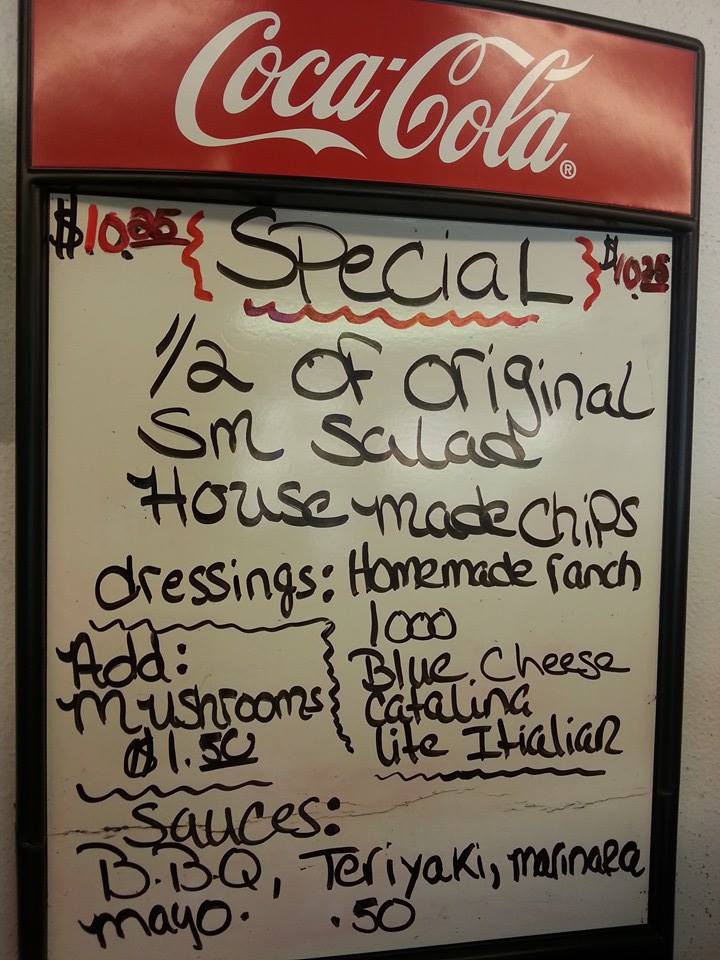 Coca-Cola®
$10.25 { SPecial } $10.25
1/2 of original
Sm Salad
House made chips
dressings: Homemade ranch
1000
Blue Cheese
Catalina
lite Itialian
Add:
Mushrooms
$1.50
Sauces:
B.B.Q, Teriyaki, marinara
mayo. .50